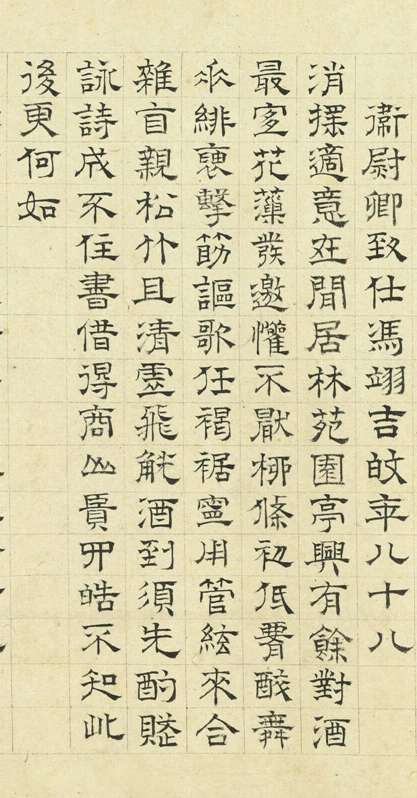 衞尉卿致仕馮翊吉皎年八十八
消搖適意在閒居林苑園亭興有餘對酒
最宜花藻發邀懽不厭柳條初低䯋醉舞
垂緋褎擊筯謳歌任褐裾寧用管絃來合
雜自親松竹且清虛飛觥酒到須先酌賦
詠詩成不住書借得商山賢四皓不知此
後更何如